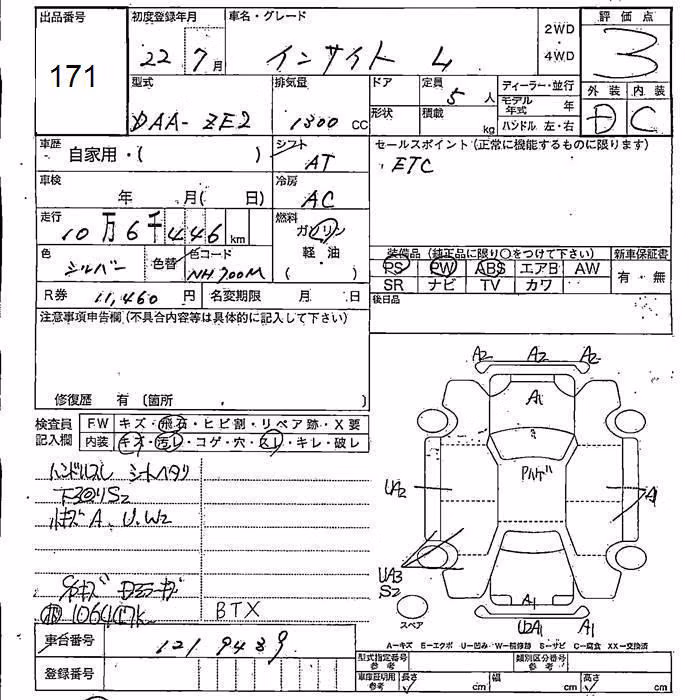 出品番号
171
初度登録年月
22 7月
車名・グレード
インサイト L
2WD
4WD
評価点
3
外装 内装
D C
型式
DAA-ZE2
排気量
1300 CC
ドア
形状
定員
5人
積載
kg
ディーラー・並行
モデル年式 年
ハンドル 左・右
車歴
自家用・( )
シフト
AT
セールスポイント(正常に機能するものに限ります)
ETC
車検
年 月( 日)
冷房
AC
走行
10万6千446km
燃料
ガソリン
軽・油
( )
色
シルバー
色替
色コード
NH700M
装備品(純正品に限り○をつけて下さい)
新車保証書
PS PW ABS エアB AW
有・無
SR ナビ TV カワ
R券 11,460円
名変期限 月 日
後日品
注意事項申告欄(不具合内容等は具体的に記入して下さい)
修復歴 有 (箇所 )
検査員記入欄
FW キズ・飛石・ヒビ割・リペア跡・X要
内装 キズ・汚レ・コゲ・穴・スレ・キレ・破レ
ハンドルスレ シートヘタリ
S2
A、U、W2
BTX
車台番号
1219489
登録番号
A2 A2 A2
A1
UA2
A1
UA3
S2
A1
U2A1 A1
スペア
A-キズ E-エクボ U-凹み W-補修跡 S-サビ C-腐食 XX-交換済
型式指定番号 参考
類別区分番号 参考
車庫証明用 参考
長さ cm
幅 cm
高さ cm